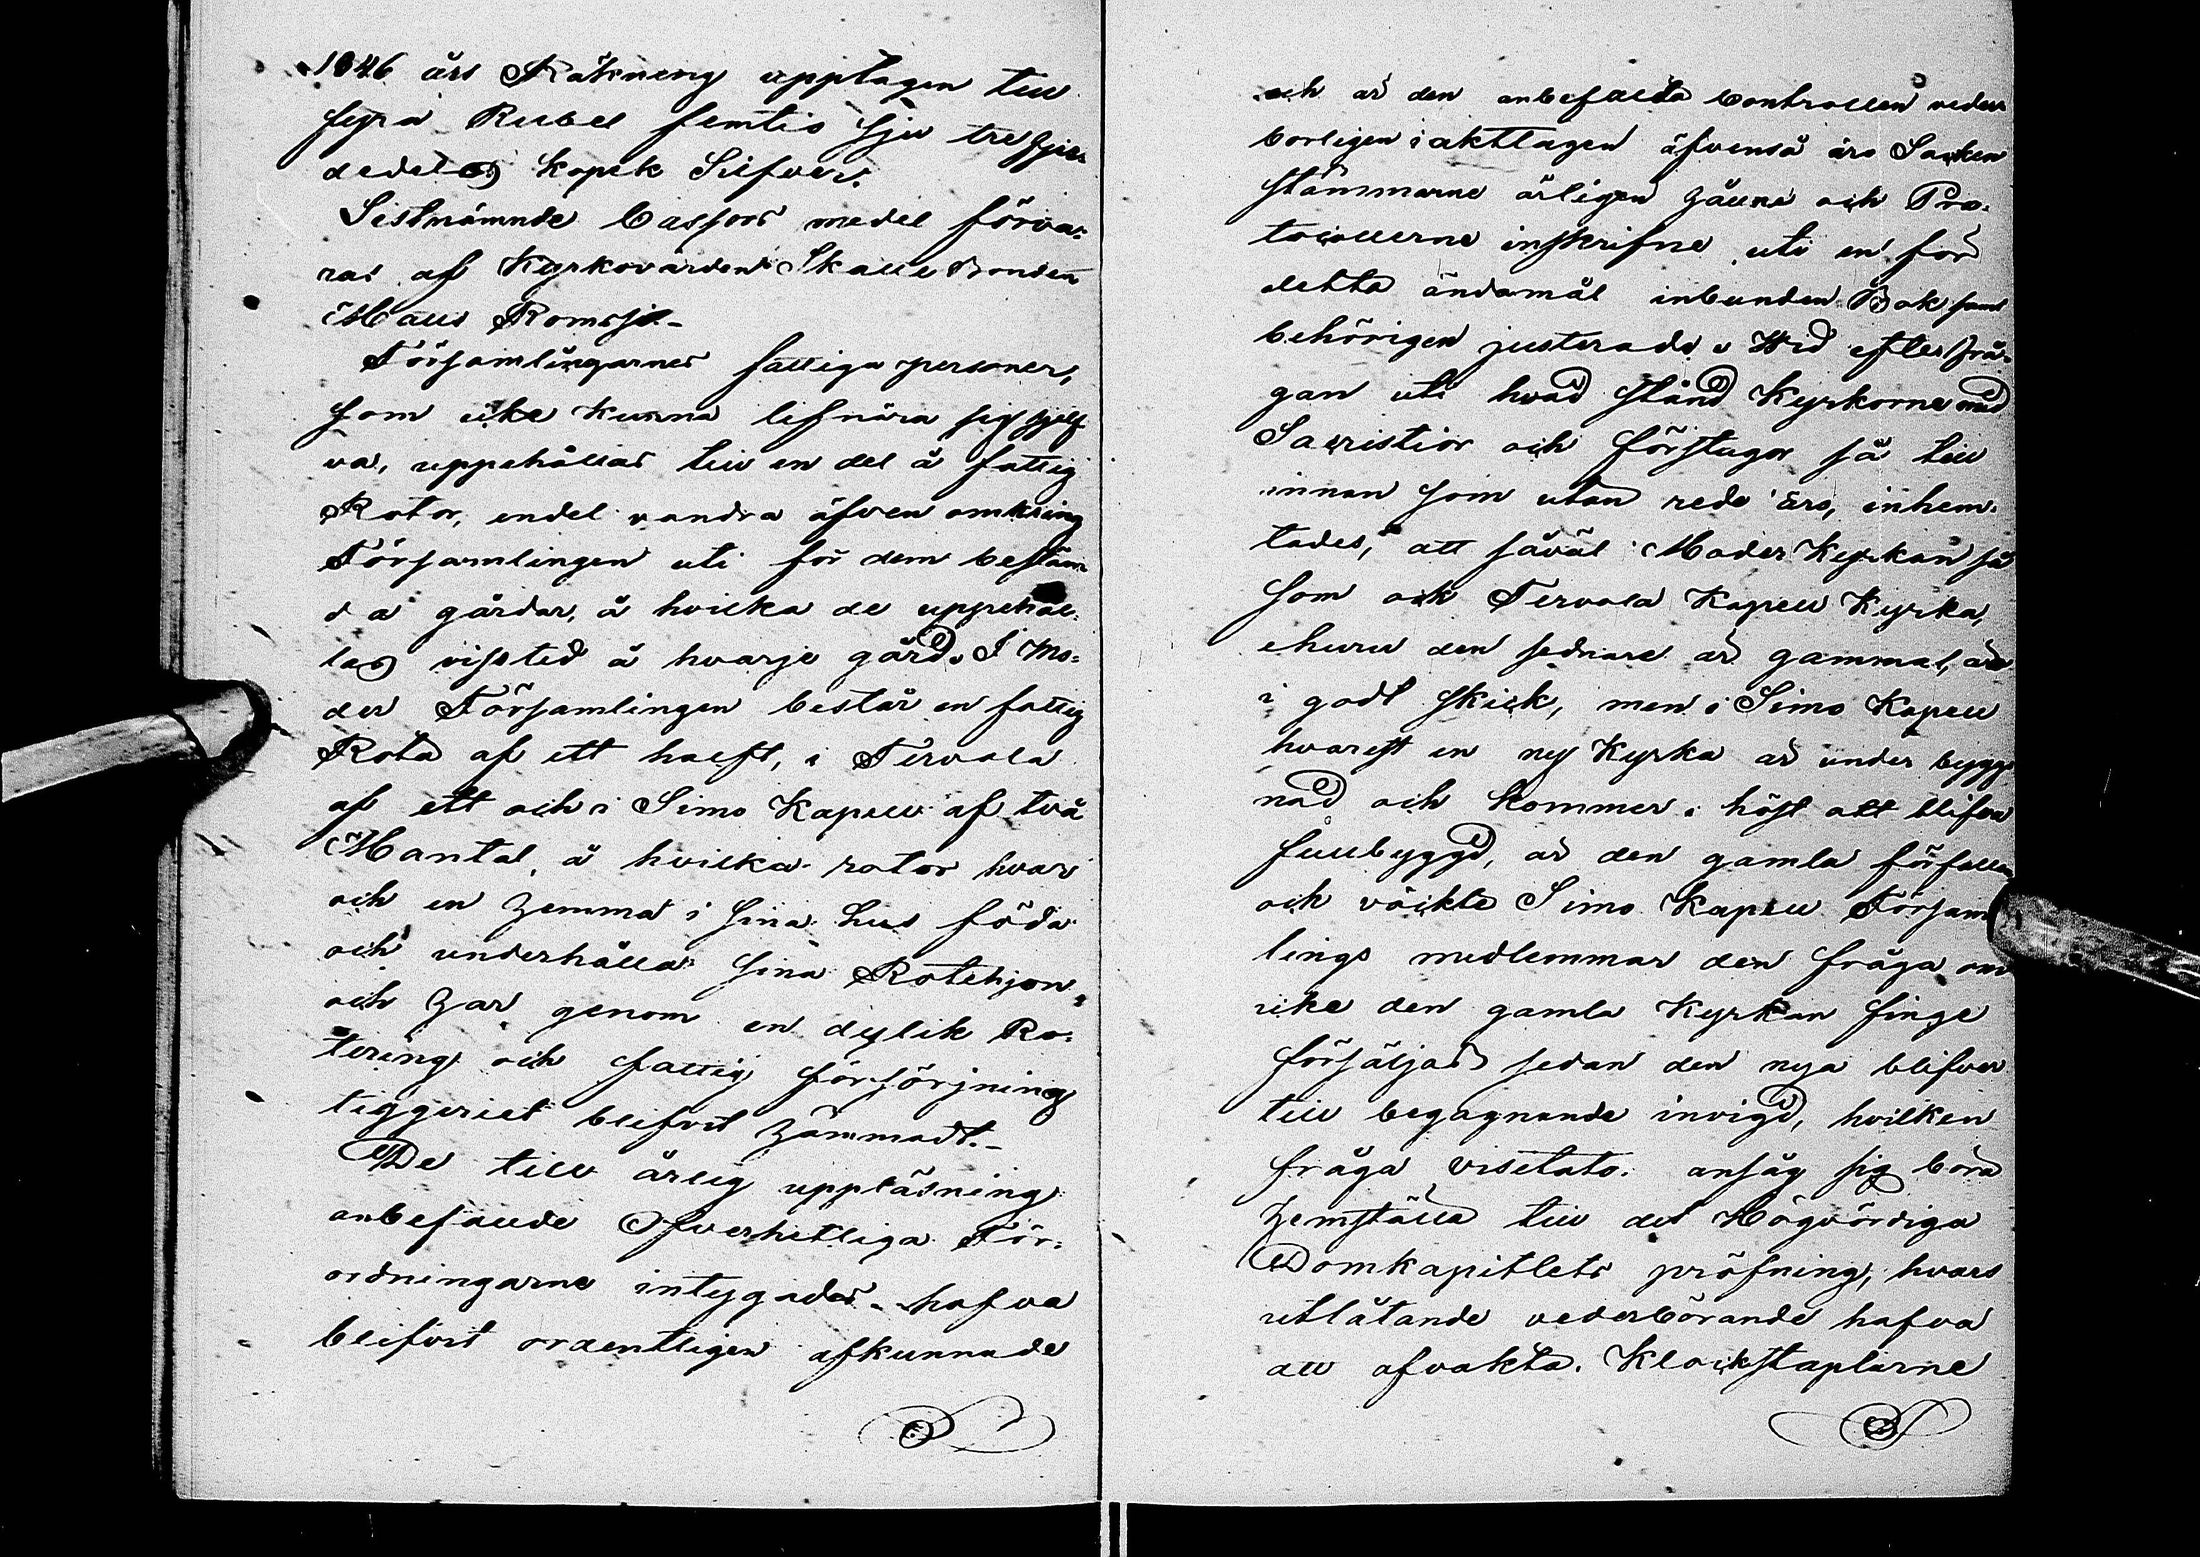 1846 års Räkning upptagen till
fyra Rubel femtio sju tre fjer
dedels kopek Silfver.
Sistnämnde Cassors medel förva-
ras af Kyrkovärden Skatte Bonden
Maus Romsji.-
Församlingarnes fattiga personer,
som icke kunna lifnära sig sjelf
va, uppehållas till en del å fattig
Rotor, endel vandra äfven omkring
Församlingen uti för dem bestäm
da gårdar, å hvilka de uppehål-
las viss tid å hvarje gård. I Mo-
der Församlingen består en fattig
Rota af ett halft, i Tervola
af ett och i Simo Kapell af två
Mantal, å hvilka rotor hvar
och en hemma i sina hus föda
och underhålla sina Rotehjon,
och har genom en dylik Ro-
tering och fattig försörjning
tiggeriet blifvit hämmadt.-
De till årlig uppläsning
anbefallde Öfverhetliga För-
ordningarne intygades hafva
blifvit ordentligen afkunnade
och är den anbefallda Controllen veder
börligen iakttagen äfvenså äro Socken
stämmorne årligen hållne och Pro-
tocollerne inskrifne uti en för
detta ändamål inbunden Bok samt
behörigen justerade. Wid efterfrå-
gan uti hvad stånd Kyrkorne med
Sacristior och förstugor så till
innan som utan rede äro, inhem-
tades, att såväl Moder Kyrkan så
som och Tervola Kapell Kyrka,
ehuru den sednare är gammal, äro
i godt skick, men i Simo Kapell
hvarest en ny Kyrka är under bygg
nad och kommer i höst att blifva
fullbyggd, är den gamla förfallen
och väckte Simo Kapell Försam
lings medlemmar den fråga om
icke den gamla Kyrkan finge
försäljas sedan den nya blifver
till begagnande invigd, hvilken
fråga visitator ansåg sig böra
hemställa till det Högvördiga
Domkapitlets pröfning, hvars
utlåtande vederbörande hafva
att afvakta. Klockstaplarne